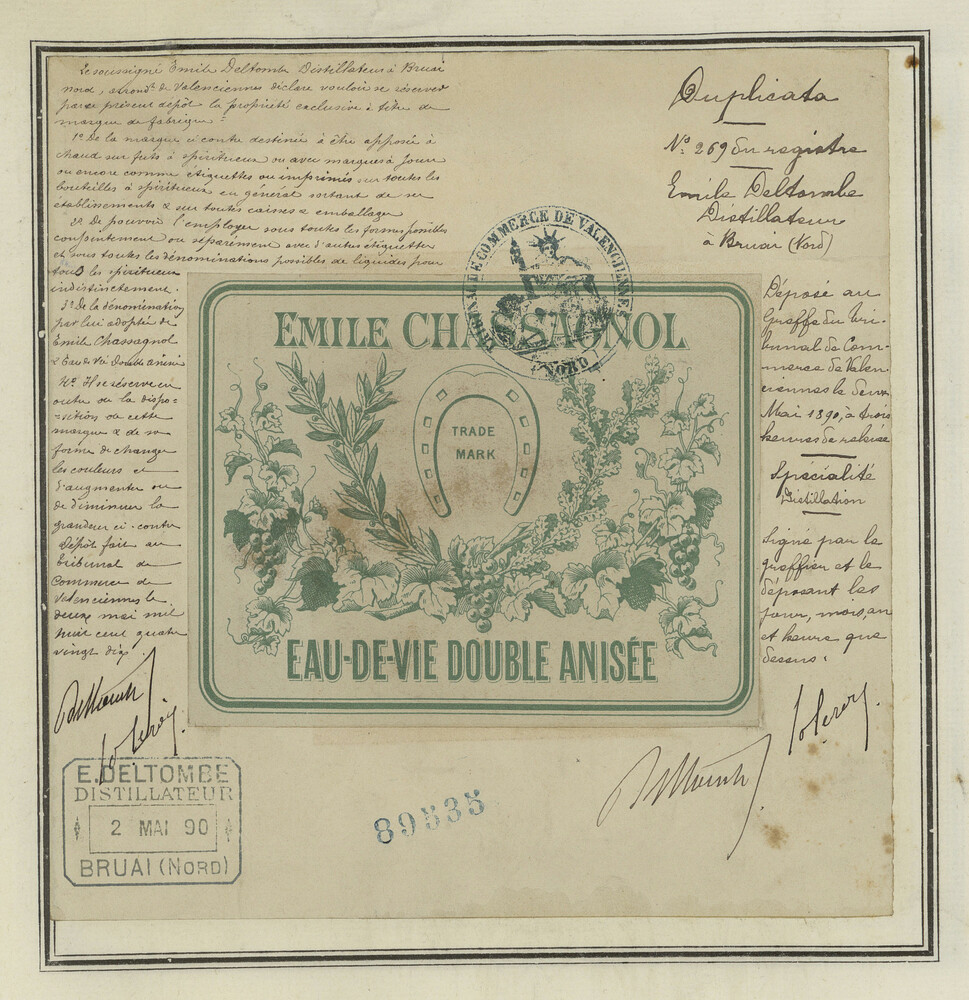 Le soussigné Emile Deltombe Distillateur à Bruai
nord, arrondt de Valenciennes déclare vouloir se réserver
par ce présent dépôt la propriété exclusive à titre de
marque de fabrique =
1º De la marque ci contre destinée à être apposée à
chaud sur futs à spiritueux ou avec marques à jour
ou encore comme étiquettes ou imprimés sur toutes les
bouteilles à spiritueux en général sortant de ses
établissements & sur toutes caisses & emballages
2º De pouvoir l'employer sous toutes les formes possibles
conjointement ou séparément avec d'autres étiquettes
et sous toutes les dénominations possibles de liquides pour
tous les spiritueux
indistinctement.
3º De la dénomination
par lui adoptée de
Emile Chassagnol
& Eau de Vie Double anisée
Nº Il se réserve en
outre de la dispo-
=sition de cette
marque & de sa
forme de changer
les couleurs et
d'augmenter ou
de diminuer la
grandeur ci-contre
Dépôt fait au
tribunal de
Commerce de
Valenciennes le
deux mai mil
huit cent quatre
vingt dix.
Duplicata
Nº 269 du registre
Emile Deltombe
Distillateur
à Bruai (Nord)
Déposé au
Greffe du Tri-
bunal de Com-
merce de Valen-
ciennes le deux
Mai 1890, à trois
heures de relevée
Spécialité
Distillation
Signé par le
greffier et le
déposant les
jour, mois, an
et heure que
dessus.
TRIBUNAL DE COMMERCE DE VALENCIENNES
(NORD)
EMILE CHASSAGNOL
TRADE
MARK
EAU-DE-VIE DOUBLE ANISÉE
E. DELTOMBE
DISTILLATEUR
2 MAI 90
BRUAI (NORD)
89535